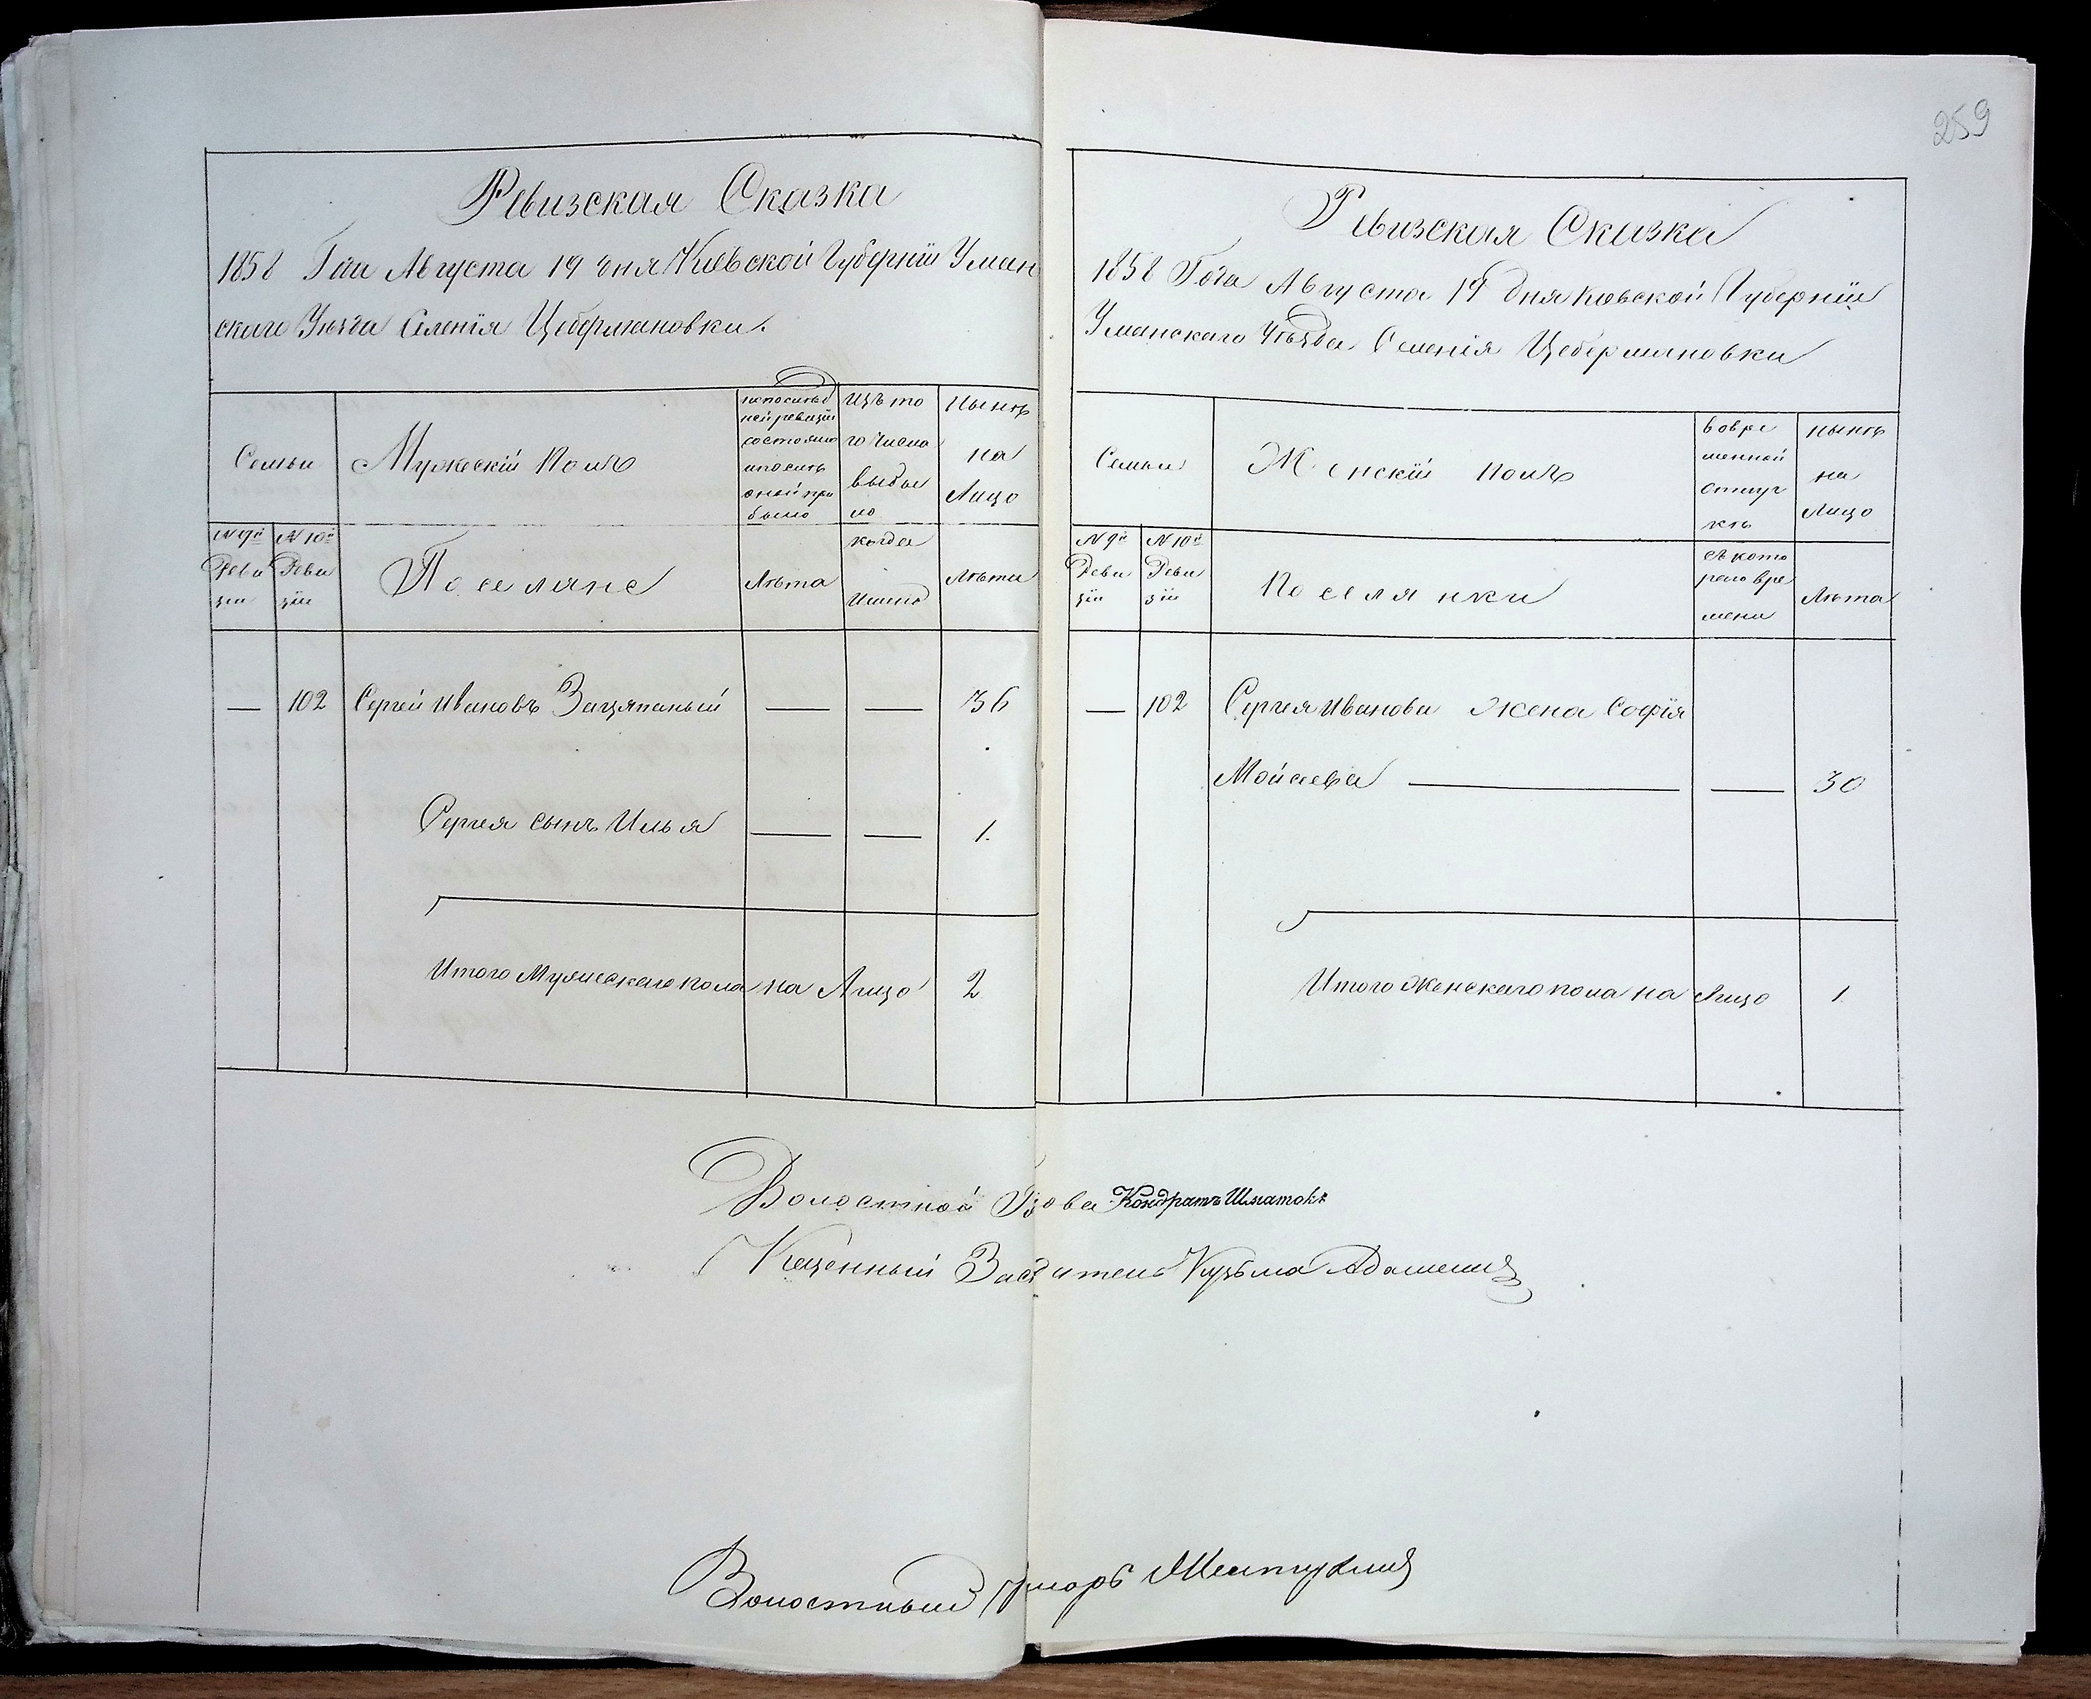 259
Ревизская Сказка
1858 Года Августа 19 дня Киевской Губерніи Уман
скаго Уезда Селенія Цебермановки.
Семьи
Мужескій Полъ
изъ то
го числа
выбы
ло
Нынѣ
на
Лицо
№ 9й
Реви
зіи
№ 10й
Реви
зіи
Поселяне
Лѣта
когда
Лѣта
— 102 Сергей Ивановъ Зацяпаный — — 36
Сергея сынъ Илья — — 1.
Итого Мужескаго пола на Лицо 2
Ревизская Сказка
1858 Года Августа 19 дня Киевской Губерніи
Уманскаго Уѣзда Селенія Цебермановки
Семьи
Женскій полъ
вовре
менной
отлуч
кѣ
нынѣ
на
Лицо
№ 9й
Реви
зіи
№ 10й
Реви
зіи
Поселянки
съ кото
раго вре
мени
Лѣта
— 102 Сергея Иванова жена Софія
Мойсеева — — 30
Итого Женскаго пола на Лицо 1
Волостной Голова Кондратъ Шматокъ
Казенный Заседатель Кузьма
Волостный Писарь